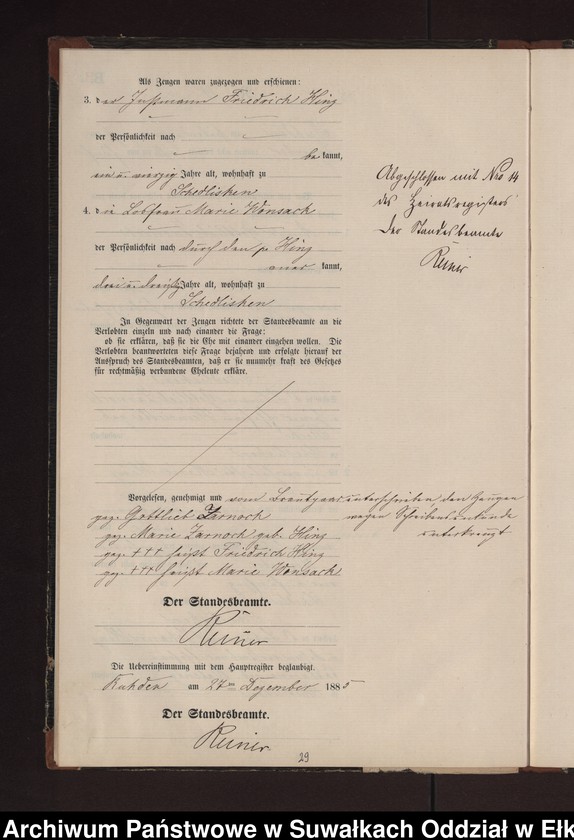 Als Zeugen waren zugezogen und erschienen:
3. der Instmann Friedrich Hing
der Persönlichkeit nach
be kannt,
ein u. vierzig Jahre alt, wohnhaft zu
Schedlisken
4. die Losfrau Marie Wonsack
der Persönlichkeit nach durch den p. Hing
aner kannt,
drei u. dreißig Jahre alt, wohnhaft zu
Schedlisken
In Gegenwart der Zeugen richtete der Standesbeamte an die
Verlobten einzeln und nach einander die Frage:
ob sie erklären, daß sie die Ehe mit einander eingehen wollen. Die
Verlobten beantworteten diese Frage bejahend und erfolgte hierauf der
Ausspruch des Standesbeamten, daß er sie nunmehr kraft des Gesetzes
für rechtmäßig verbundene Eheleute erkläre.
Vorgelesen, genehmigt und vom Brautpaar unterschrieben den Zeugen
wegen Schreibensunkunde
unterkreuzt
gez. Gottlieb Zarnoch
gez. Marie Zarnoch geb. Hing
gez. +++ heißt Friedrich Hing
gez. +++ heißt Marie Wonsack
Der Standesbeamte.
Reiner
Die Uebereinstimmung mit dem Hauptregister beglaubigt.
am 27ten Dezember 1885
Der Standesbeamte.
Reiner
Abgeschlossen mit Nro 14
des Heiratsregisters
Der Standesbeamte
Reiner
29
Archiwum Państwowe w Suwałkach Oddział w Ełk